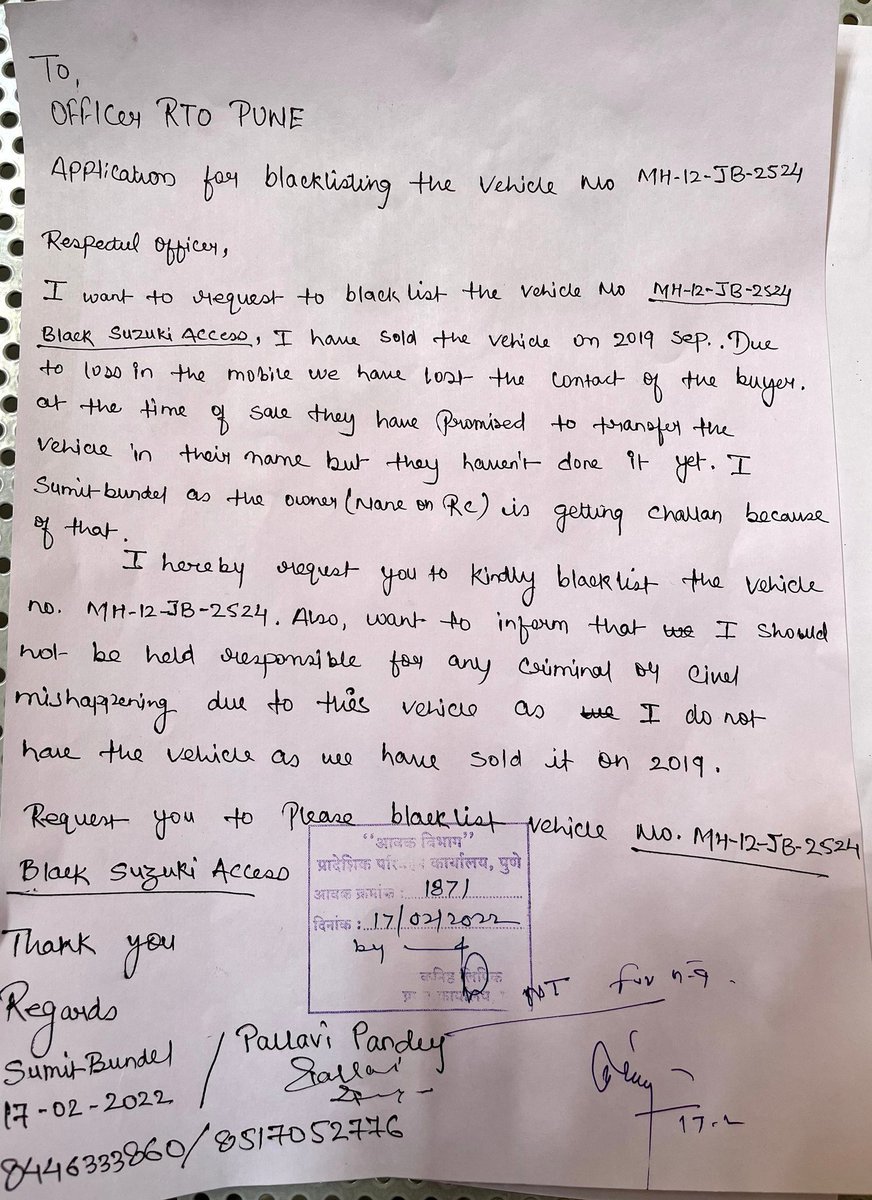 To,
Officer RTO PUNE
Application for blacklisting the vehicle no MH-12-JB-2524
Respectul officer,
I want to request to blacklist the vehicle no MH-12-JB-2524
Black Suzuki Access, I have sold the vehicle on 2019 Sep.. Due
to loss in the mobile we have lost the contact of the buyer.
at the time of sale they have Promised to transfer the
vehicle in their name but they haven't done it yet. I
Sumit bundel as the owner (Name on RC) is getting challan because
of that.
I hereby request you to kindly blacklist the vehicle
no. MH-12-JB-2524. Also, want to inform that we I should
not be held responsible for any criminal or civel
mishappening due to this vehicle as we I do not
have the vehicle as we have sold it on 2019.
Request you to Please blacklist vehicle No. MH-12-JB-2524
Black Suzuki Access
"आवक विभाग"
प्रादेशिक परिवहन कार्यालय, पुणे
आवक क्रमांक : 1871
दिनांक : 17/02/2022
by
कनिष्ठ लिपिक
Thank you
Regards
Sumit Bundel / Pallavi Pandey
17-02-2022
8446333860/8517052776
17-2